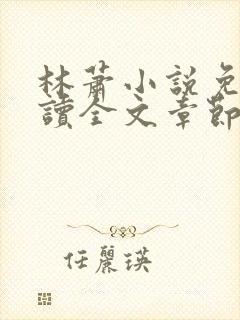 林蕭小說免
讀全文章節
任麗瑛